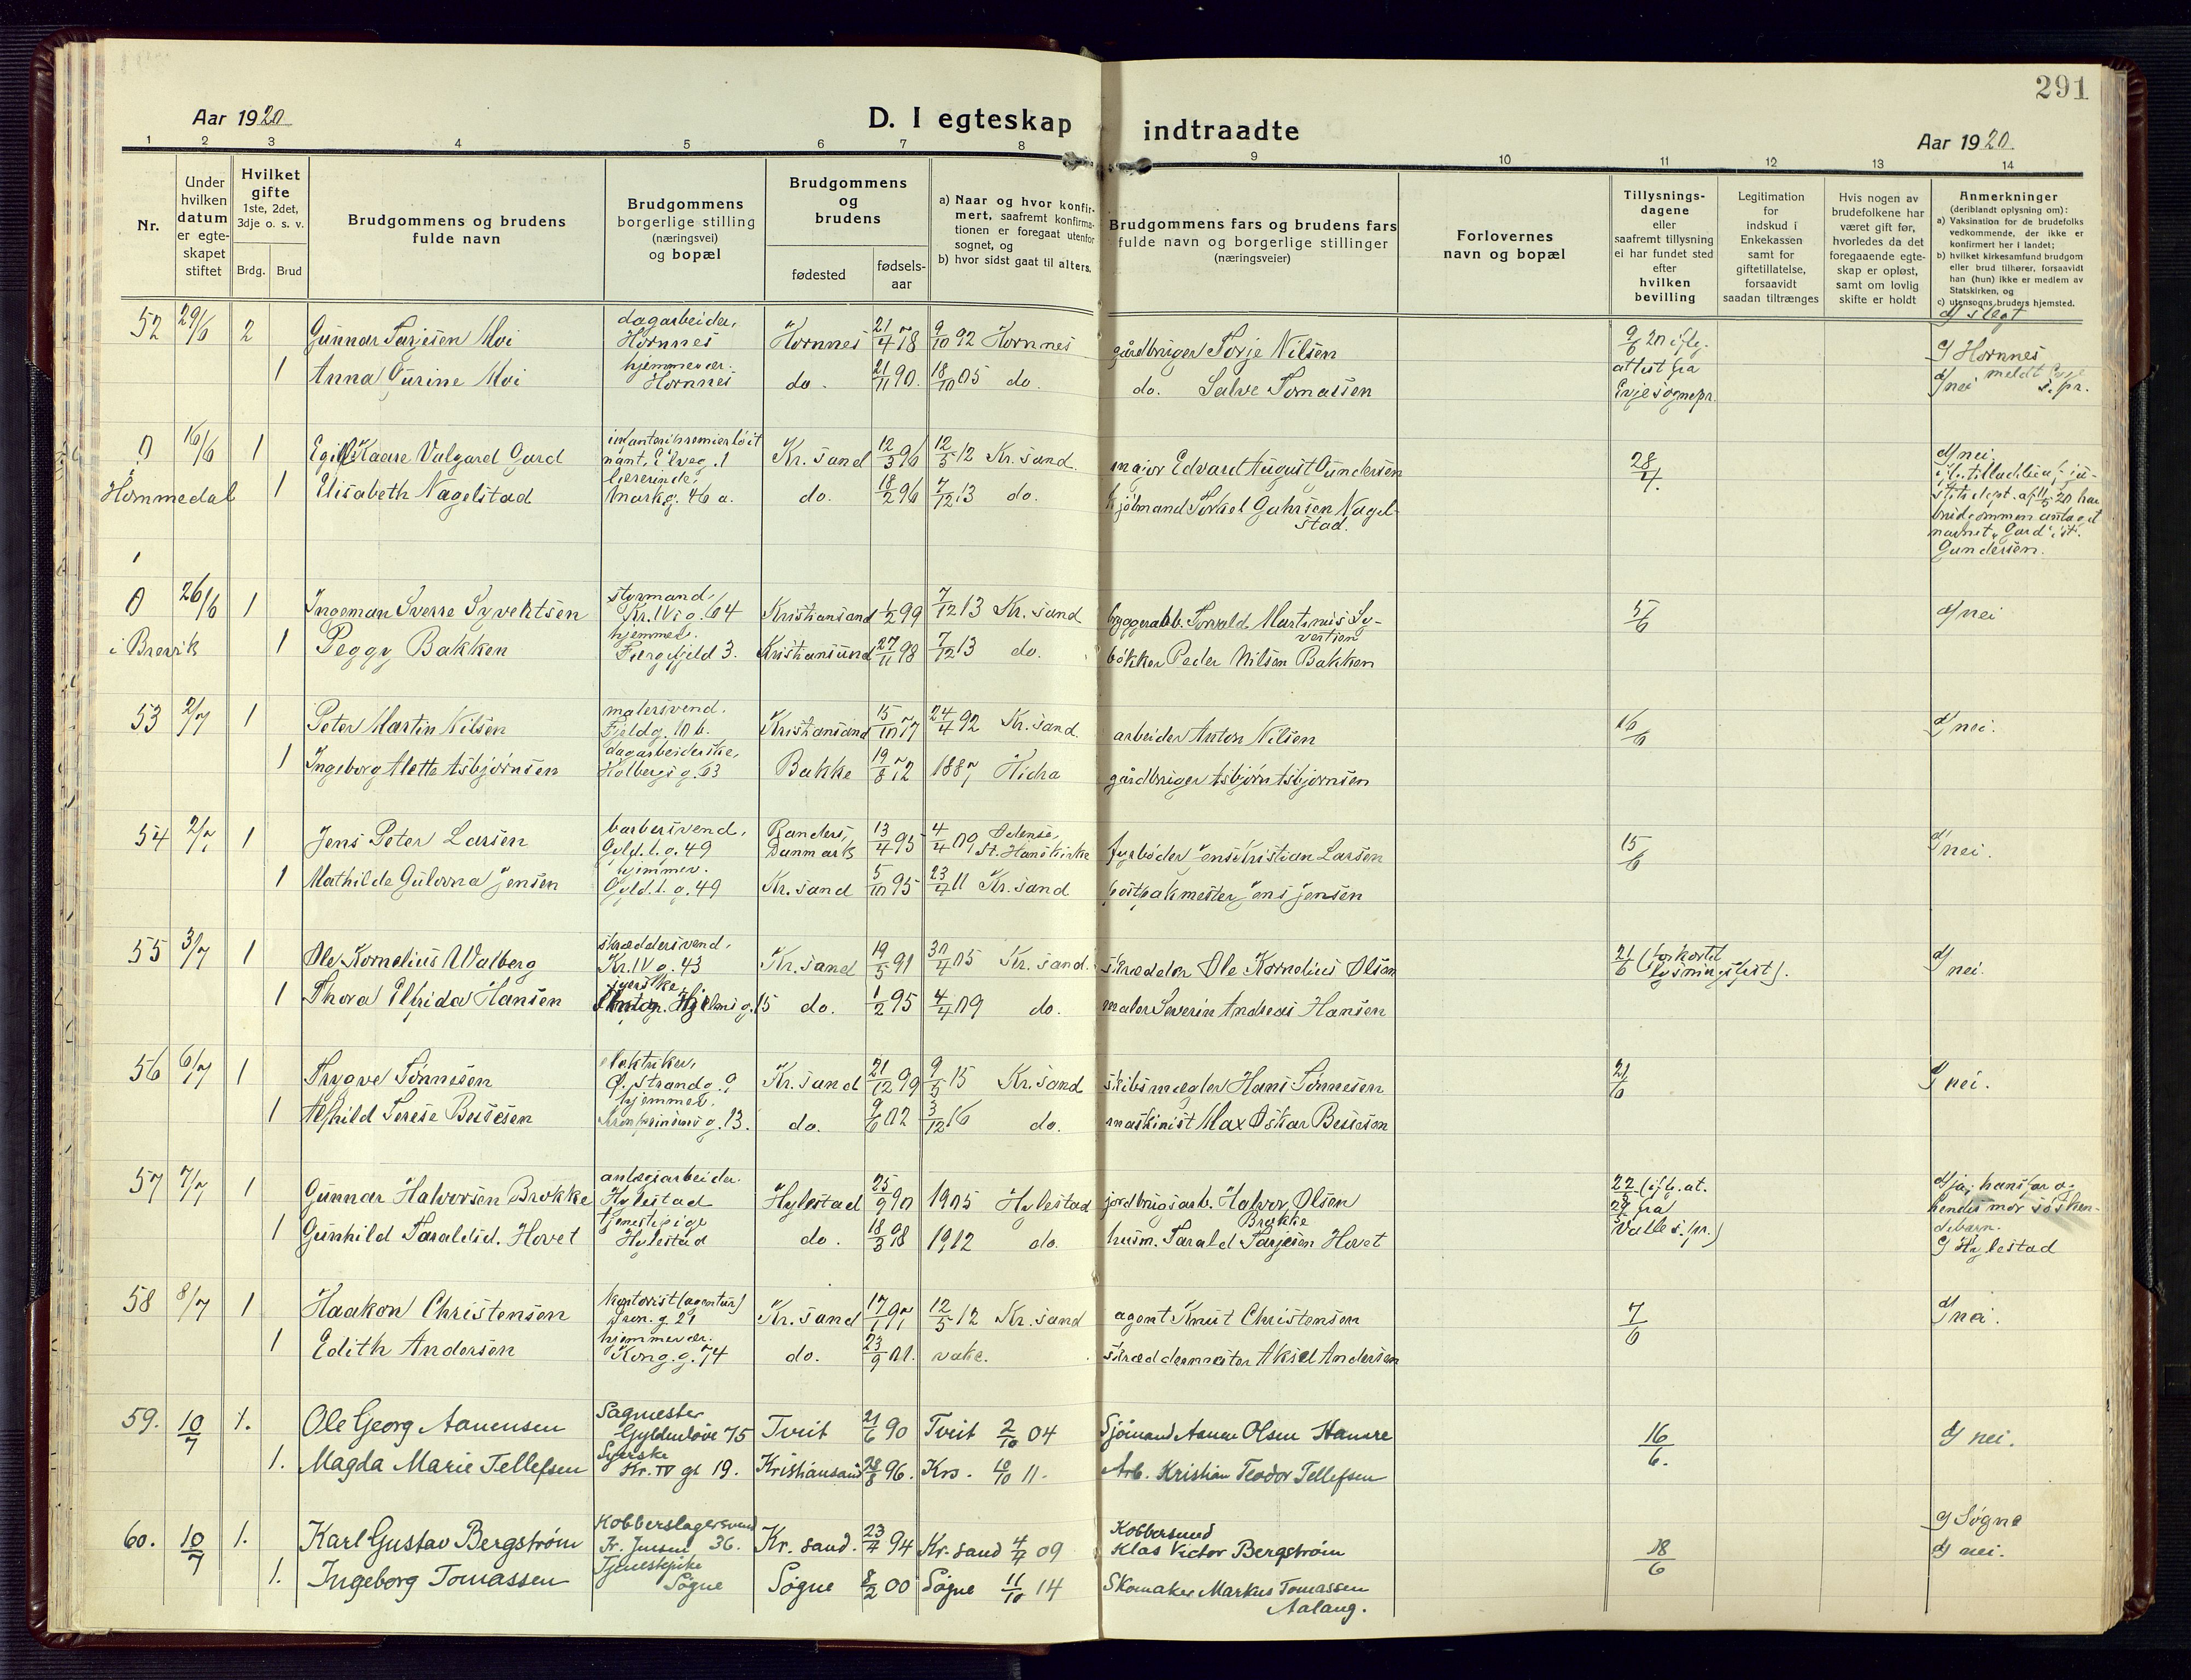 291
Aar 1920
D. I egteskap indtraadte
Aar 1920
1 2 3 4 5 6 7 8 9 10 11 12 13 14
Nr.
Under
hvilken
datum
er egte-
skapet
stiftet
Hvilket
gifte
1ste, 2det,
3dje o. s. v.
Brdg. Brud
Brudgommens og brudens
fulde navn
Brudgommens
borgerlige stilling
(næringsvei)
og bopæl
Brudgommens
og
brudens
fødested
fødsels-
aar
a) Naar og hvor konfir-
mert, saafremt konfirma-
tionen er foregaat utenfor
sognet, og
b) hvor sidst gaat til alters.
Brudgommens fars og brudens fars
fulde navn og borgerlige stillinger
(næringsveier)
Forlovernes
navn og bopæl
Tillysnings-
dagene
eller
saafremt tillysning
ei har fundet sted
efter
hvilken
bevilling
Legitimation
for
indskud i
Enkekassen
samt for
giftetillatelse,
forsaavidt
saadan tiltrænges
Hvis nogen av
brudefolkene har
været gift før,
hvorledes da det
foregaaende egte-
skap er opløst,
samt om lovlig
skifte er holdt
Anmerkninger
(deriblandt oplysning om):
a) Vaksination for de brudefolks
vedkommende, der ikke er
konfirmert her i landet;
b) hvilket kirkesamfund brudgom
eller brud tilhører, forsaavidt
han (hun) ikke er medlem av
Statskirken, og
c) utensogns bruders hjemsted.
d/ slegt
52 29/6 2 Gunnar Tarjesen Moi dagarbeider, Hornnes Hornnes 21/4 78 9/10 92 Hornnes gårdbruger Torje Nilsen 9/6 20 iflg. attest fra Evje sognepr. c/ Hornnes
1 Anna Gurine Moi hjemmevær. Hornnes do. 21/11 90. 18/10 05 do. do. Salve Tomassen d/ nei meldt Evje s.pr.
0 16/6 1 Egil Kaare Valgard Gard infanteripremierløit nant, Elveg. 1 Kr.sand 12/3 96 12/5 12 Kr.sand. major Edvard August Gundersen 28/4. d/ nei
i Hommedal 1 Elisabeth Nagelstad lærerinde, Markg. 46 a. do. 18/2 96 7/12 13 do. Torkel Nagel-
stad.
af 11/5 20 har
brudgommen antaget
navnet "Gard" ist.
Gundersen.
0 26/6 1 Ingeman Sverre Syvertsen styrmand, Kr. IV g. 64 Kristiansand 1/2 99 7/12 13 Kr.sand byggearb. Torvald Martinus Sy-
vertsen 5/6 d/ nei
i Brevik 1 Peggy Bakken hjemmev. 3. Kristiansund 27/11 98 7/12 13 do. bøkker Peder Nilsen Bakken
53 2/7 1 Peter Martin Nilsen malersvend. Fjeldg. 10 b. Kristiansand 15/10 77 24/4 92 Kr.sand. arbeider Anton Nilsen 16/6 d/ nei.
1 Ingeborg Alette Asbjørnsen dagarbeiderske, Holbergs g. 63 Bakke 19/8 72 1887 Hidra gårdbruger Asbjørn Asbjørnsen
54 2/7 1 Jens Peter Larsen barbersvend, Gyld.l.g. 49 Randers, Danmark 13/4 95 4/4 09 Odense, St. Hans kirke fyrbøder Jens Kristian Larsen 15/6 d/ nei.
1 Mathilde Gulovna Jensen hjemmev. Gyld.l.g. 49 Kr.sand 5/10 95 23/4 11 Kr.sand postpakmester Jens Jensen
55 3/7 1 Ole Kornelius Walberg skræddersvend, Kr. IV g. 43 Kr.sand 19/5 91 30/4 05 Kr.sand. skrædder Ole Kornelius Olsen 21/6 (forkortet lysningsfrist). d/ nei.
1 Thora Elfrida Hansen syerske, 15 do. 1/2 95 4/4 09 do. maler Severin Andreas Hansen
56 6/7 1 Trygve Tønnesen elektriker, Ø. Strandg. 9 Kr.sand 21/12 99 9/5 15 Kr.sand skibsmægler Hans Tønnesen 21/6 d/ nei.
1 Alfhild Terese Bessesen hjemmev. Kronprinsens g. 13. do. 9/6 02 3/12 16 do. maskinist Max Oskar Bessesen
57 7/7 1 Gunnar Halvorsen Brokke anlægsarbeider Hylestad Hylestad 25/9 90 1905 Hylestad jordbrugsarb. Halvor Olsen
Brokke 22/5 (iflg. at. fra Valle s.pr.) d/ ja, hans far og
hendes mor søsken-
debarn.
1 Gunhild Taraldsd. Hovet tjenestepige Hylestad do. 18/3 98 1912 do. husm. Tarald Tarjesen Hovet c/ Hylestad
58 8/7 1 Haakon Christensen kontorist (agentur) Dron. g. 21 Kr.sand 17/1 97 12/5 12 Kr.sand agent Knut Christensen 7/6 d/ nei.
1 Edith Andersen hjemmevær. Kong. g. 74 do. 23/9 01. vakc. skræddermester Aksel Andersen
59. 10/7 1. Ole Georg Aanensen Sagmester Gyldenløve 75 Tveit 21/6 90 Tveit 2/10 04 Sjømand Aanen Olsen Hamre 16/6. d/ nei.
1. Magda Marie Tellefsen Syerske Kr. IV gt 19. Kristiansand 28/8 96. Krs. 10/10 11. Arb. Kristian Teodor Tellefsen
60. 10/7 1. Karl Gustav Bergstrøm Kobberslagersvend 36. Kr. sand. 23/7 94 Kr. sand 4/4 09 Kobbersmed
Klas Victor Bergstrøm 18/6 c/ Søgne
d/ nei.
1. Ingeborg Tomassen Tjenestepike Søgne Søgne 8/2 00 Søgne 11/10 14 Skomaker Markus Tomassen
Aalang.